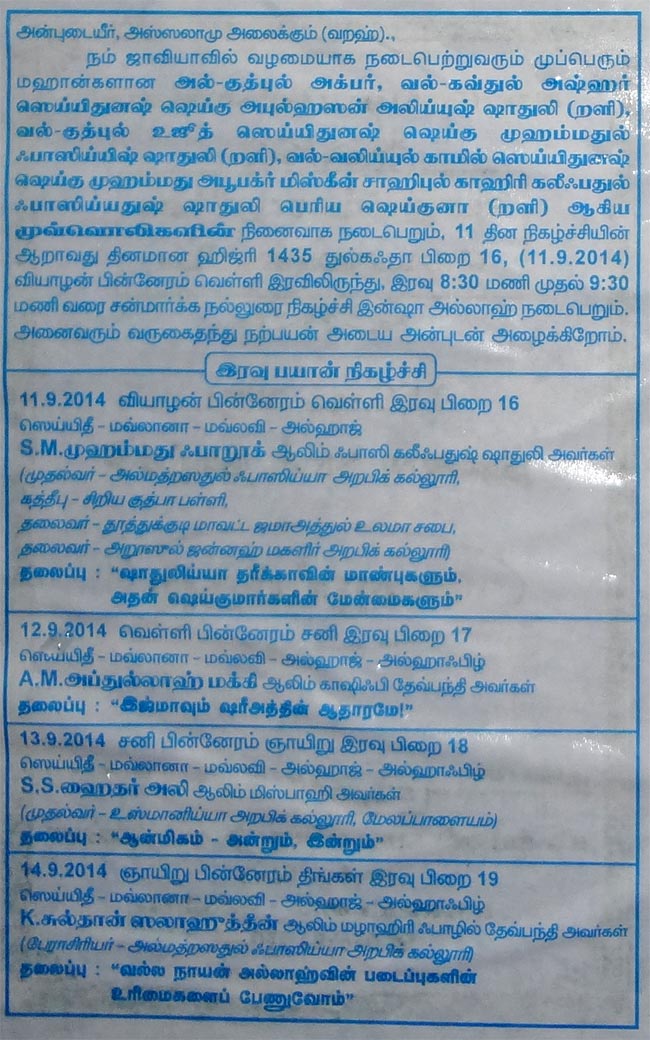 அன்புடையீர், அஸ்ஸலாமு அலைக்கும் (வறஹ்).,
நம் ஜாவியாவில் வழமையாக நடைபெற்றுவரும் முப்பெரும்
மஹான்களான அல்-குத்புல் அக்பர், வல்-கவ்துல் அஷ்ஹர்
ஸெய்யிதுனஷ் ஷெய்கு அபுல்ஹஸன் அலிய்யுஷ் ஷாதுலி (றளி),
வல்-குத்புல் உஜூத் ஸெய்யிதுனஷ் ஷெய்கு முஹம்மதுல்
ஃபாஸிய்யிஷ் ஷாதுலி (றளி), வல்-வலிய்யுல் காமில் ஸெய்யிதுனஷ்
ஷெய்கு முஹம்மது அபூபக்ர் மிஸ்கீன் சாஹிபுல் காஹிரி கலீஃபதுல்
ஃபாஸிய்யதுஷ் ஷாதுலி பெரிய ஷெய்குனா (றளி) ஆகிய
முவ்வொலிகளின் நினைவாக நடைபெறும், 11 தின நிகழ்ச்சியின்
ஆறாவது தினமான ஹிஜ்ரி 1435 துல்கஃதா பிறை 16, (11.9.2014)
வியாழன் பின்னேரம் வெள்ளி இரவிலிருந்து, இரவு 8:30 மணி முதல் 9:30
மணி வரை சன்மார்க்க நல்லுரை நிகழ்ச்சி இன்ஷா அல்லாஹ் நடைபெறும்.
அனைவரும் வருகைதந்து நற்பயன் அடைய அன்புடன் அழைக்கிறோம்.
இரவு பயான் நிகழ்ச்சி
11.9.2014 வியாழன் பின்னேரம் வெள்ளி இரவு பிறை 16
ஸெய்யிதீ - மவ்லானா - மவ்லவி - அல்ஹாஜ்
S.M.முஹம்மது ஃபாறூக் ஆலிம் ஃபாஸி கலீஃபதுஷ் ஷாதுலி அவர்கள்
(முதல்வர் - அல்மத்றஸதுல் ஃபாஸிய்யா அறபிக் கல்லூரி,
கத்தீபு - சிறிய குத்பா பள்ளி,
தலைவர் - தூத்துக்குடி மாவட்ட ஜமாஅத்துல் உலமா சபை,
தலைவர் - அறூஸுல் ஜன்னஹ் மகளிர் அறபிக் கல்லூரி)
தலைப்பு : “ஷாதுலிய்யா தரீக்காவின் மாண்புகளும்,
அதன் ஷெய்குமார்களின் மேன்மைகளும்”
12.9.2014 வெள்ளி பின்னேரம் சனி இரவு பிறை 17
ஸெய்யிதீ - மவ்லானா - மவ்லவி - அல்ஹாஜ் - அல்ஹாஃபிழ்
A.M.அப்துல்லாஹ் மக்கி ஆலிம் காஷிஃபி தேவ்பந்தி அவர்கள்
தலைப்பு : “இஜ்மாவும் ஷரீஅத்தின் ஆதாரமே!”
13.9.2014 சனி பின்னேரம் ஞாயிறு இரவு பிறை 18
ஸெய்யிதீ - மவ்லானா - மவ்லவி - அல்ஹாஜ் - அல்ஹாஃபிழ்
S.S.ஹைதர் அலி ஆலிம் மிஸ்பாஹி அவர்கள்
(முதல்வர் - உஸ்மானிய்யா அறபிக் கல்லூரி, மேலப்பாளையம்)
தலைப்பு : “ஆன்மிகம் - அன்றும், இன்றும்”
14.9.2014 ஞாயிறு பின்னேரம் திங்கள் இரவு பிறை 19
ஸெய்யிதீ - மவ்லானா - மவ்லவி - அல்ஹாஜ் - அல்ஹாஃபிழ்
K.சுல்தான் ஸலாஹுத்தீன் ஆலிம் மழாஹிரி ஃபாழில் தேவ்பந்தி அவர்கள்
(பேராசிரியர் - அல்மத்றஸதுல் ஃபாஸிய்யா அறபிக் கல்லூரி)
தலைப்பு : “வல்ல நாயன் அல்லாஹ்வின் படைப்புகளின்
உரிமைகளைப் பேணுவோம்”